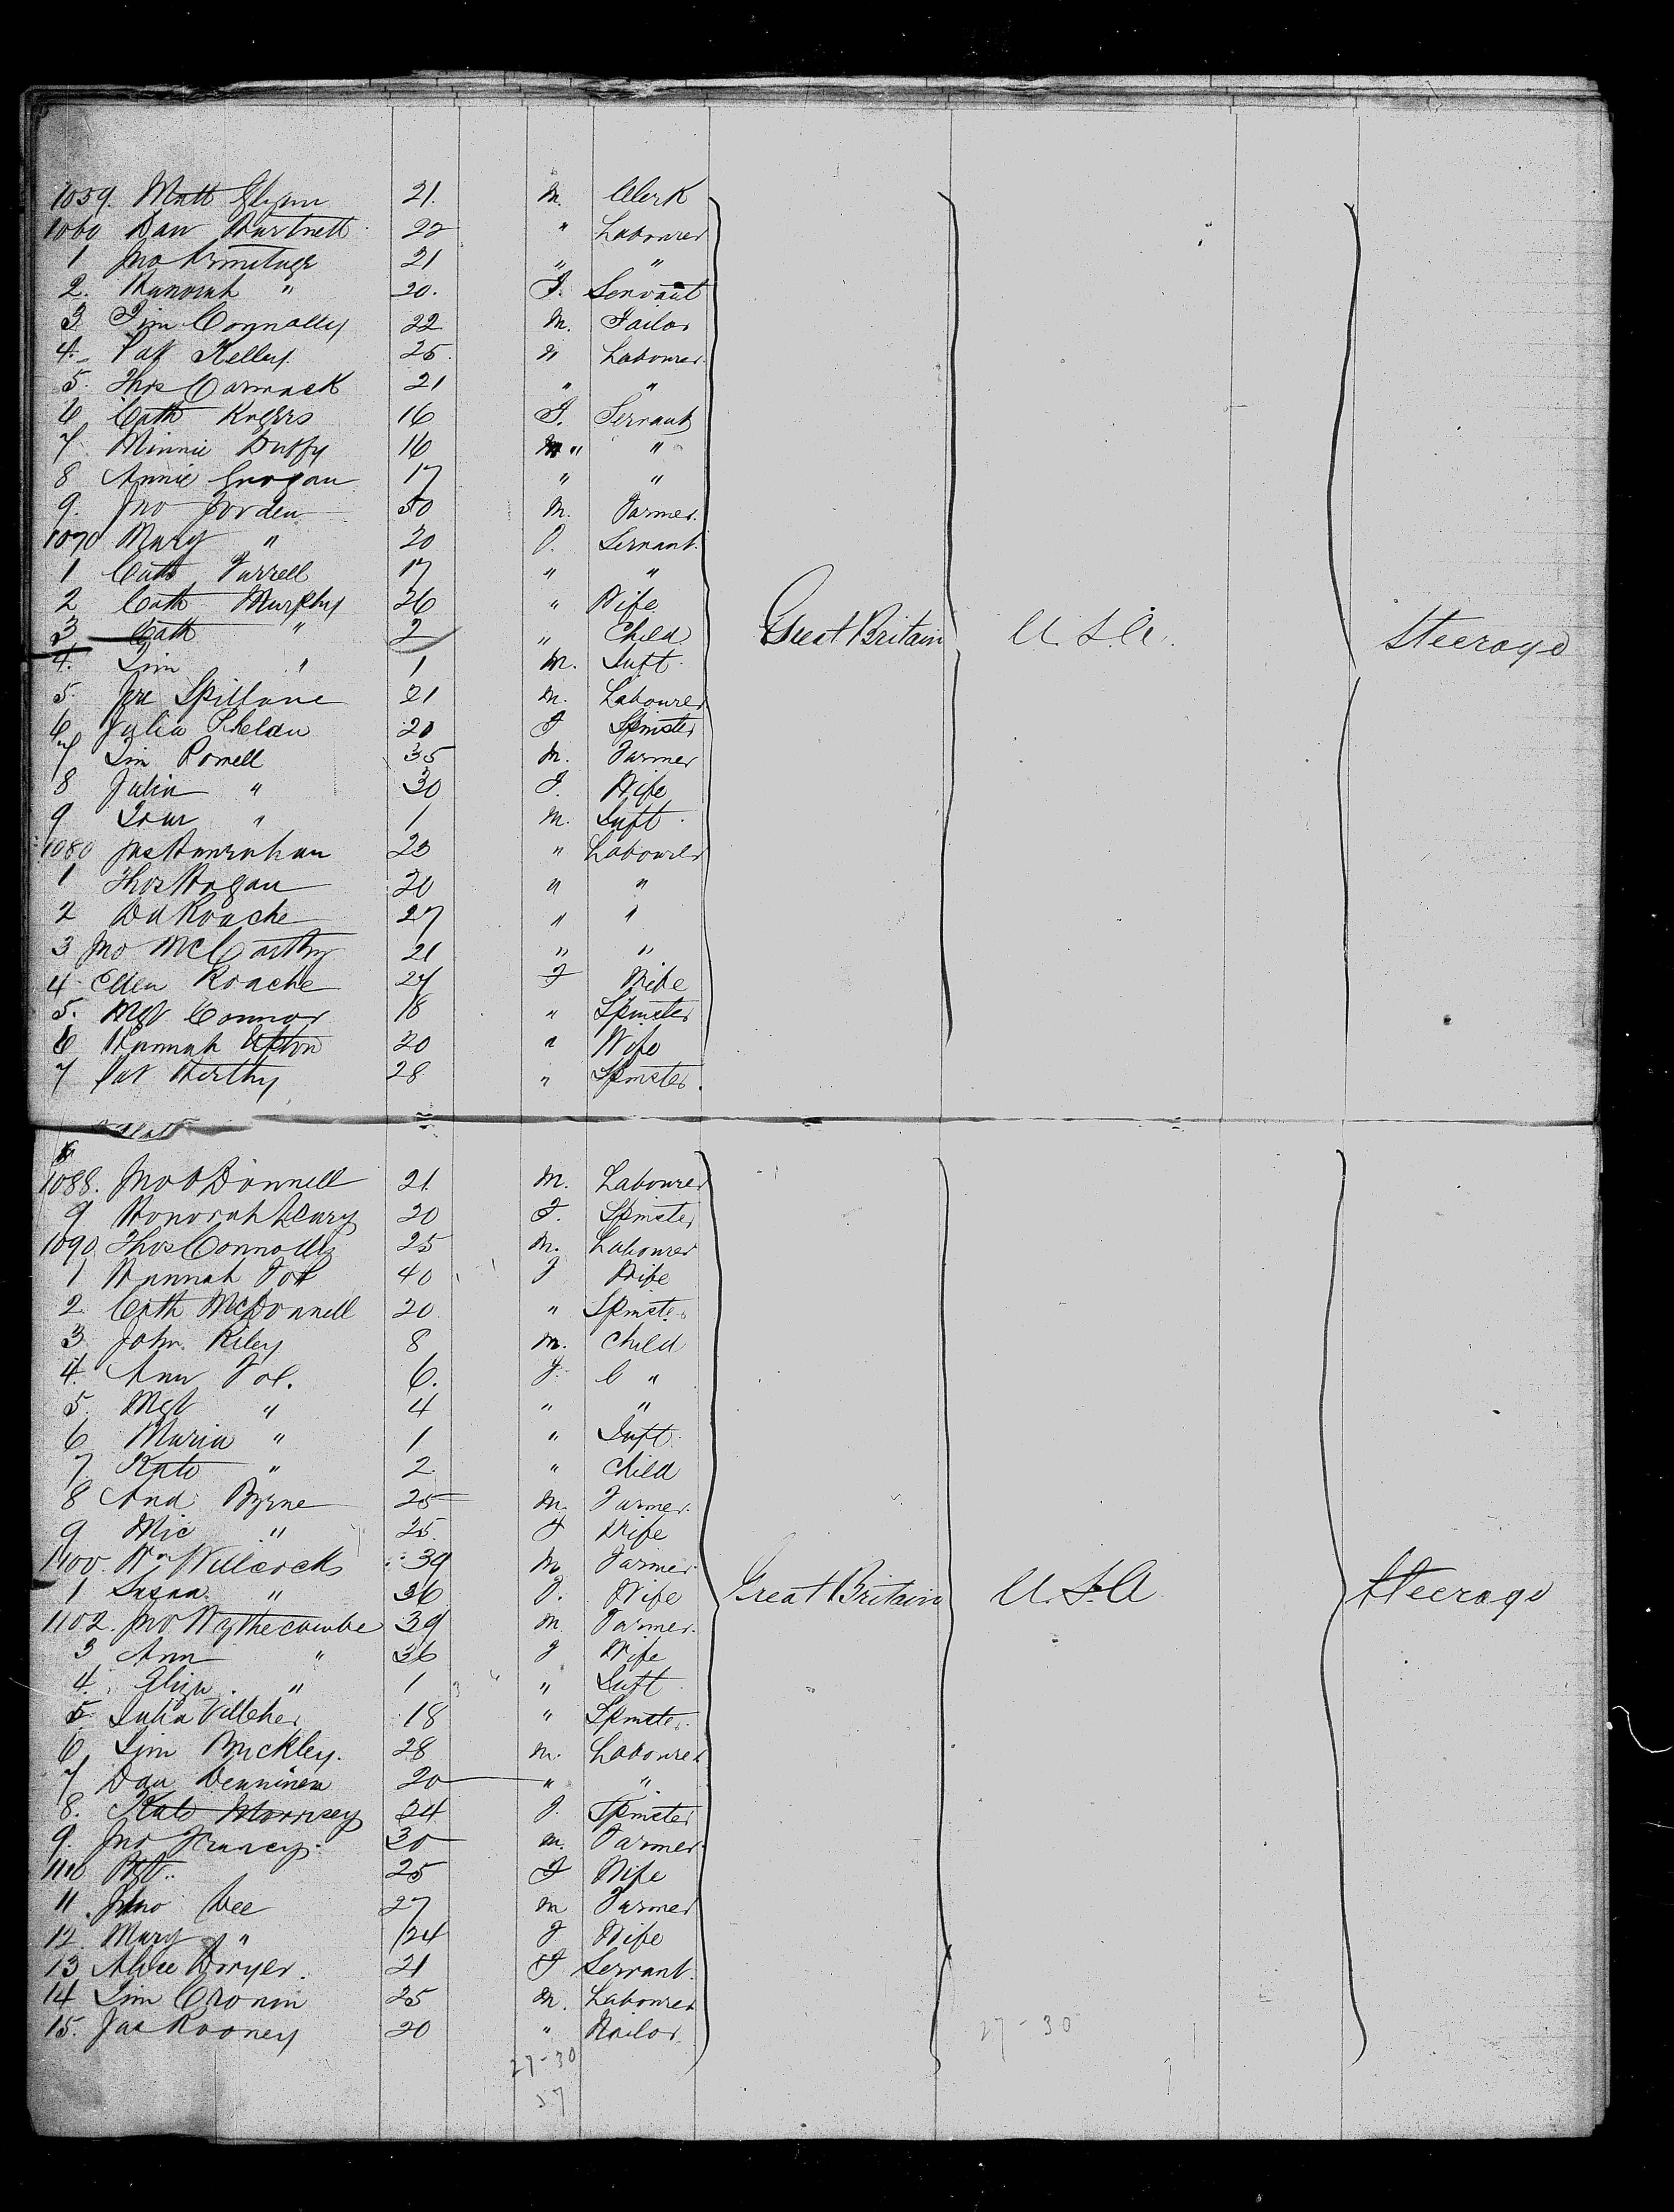 1059. Matt Glynn 21. M. Clerk
1060 Dan Hartnett 22 " Labourer
1 Jno Armitage 21 " "
2. Hanorah " 20. F. Servant
3 Tim Connolly 22 M. Tailor
4. Pat Kelley. 25. " Labourer.
5. Thos Cormack 21 " "
6 Cath Rogers 16 F. Servant
7 Minnie Duffy 16 " "
8 Annie Grogan 17 " "
9. Jno Jorden 50 M. Farmer.
1070 Mary " 20 F. Servant.
1 Cath Farrell 17 " "
2 Cath Murphy 26 " Wife
3 Cath " 2 " Child Great Britain U.S.A. Steerage
4. Tim " 1 M. Inft.
5. Jre Spillane 21 M. Labourer
6 Julia Phelan 20 F Spinster
7 Tim Powell 35 M. Farmer
8 Julia " 30 F. Wife
9 " 1 M. Inft.
1080 Jas Hanrahan 23 " Labourer
1 Thos Hogan 20 " "
2 Dd Roache 27 " "
3 Jno McCarthy 21 " "
4 Ellen Roache 27 F Wife
5. Mgt Connor 18 " Spinster
6 Hannah Upton 20 " Wife
7 Pat Herthy 28 " Spinster.
1088. Jno ODonnell 21 M. Labourer
9 Honorah Leary 20 F. Spinster
1090 Thos Connolly 25 M. Labourer
1 Hannah 40 F Wife
2. Cath McDonnell 20 " Spinster
3 John Riley 8 M. Child
4. Ann 6. F. C "
5. Mgt " 4 " "
6 Maria " 1 " Inft.
7 Kate " 2 " Child
8 And. Byrne 25 M. Farmer.
9 Mic " 25. F Wife
1100. Wm Willcocks 39 M. Farmer
1 Susan " 36 F. Wife Great Britain U.S.A Steerage
1102. Jno Wythecombe 39 M Farmer.
3 Ann " 36 F Wife
4. Eliza " 1 " Inft
5. Julia 18 " Spinster.
6 Tim Buckley. 28 M. Labourer
7 Dan 20 " "
8. Kate Morrisey 24 F. Spinster
9. Jno 30 M. Farmer.
1110 25 F Wife
11 Jno Dee 27 M Farmer
12 Mary " 24 F Wife
13 Alice Dwyer. 21 F Servant.
14 Tim Cronin 25 M. Labourer
15. Jas Rooney 20 " Tailor
27-30
27-30
57